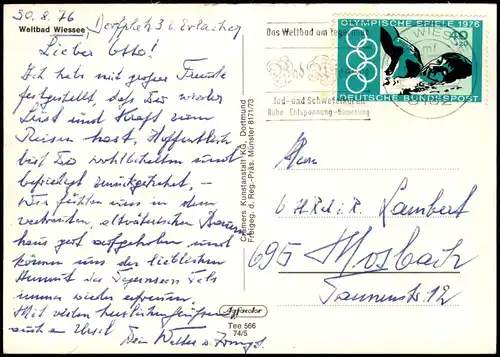 30.8.76 Dorfplatz 3 b. Erlacher
Weltbad Wiessee
Lieber Otto!
Ich hab mit großer Freude
festgestellt, daß Du wieder
Lust und Kraft zum
Reisen hast. Hoffentlich
bist Du wohlbehalten und
befriedigt zurückgekehrt. —
Wir fühlen uns in dem
vertrauten, altväterlichen Bauern
haus gut aufgehoben und
können uns der lieblichen
Anmut des Tegernsees Tals
immer wieder erfreuen.
Mit vielen herzlichen Grüßen
auch an Ursel
Dein Walter u.
Cramers Kunstanstalt KG, Dortmund
Freigeg. d. Reg.-Präs. Münster 8171/73
Agfacolor
Tee 566
74/5
Das Weltbad am Tegernsee
Jod- und Schwefelkuren
Ruhe Entspannung
OLYMPISCHE SPIELE 1976
40
+20
DEUTSCHE BUNDESPOST
Herrn
Lambert
695 Mosbach
Tannenstr. 12